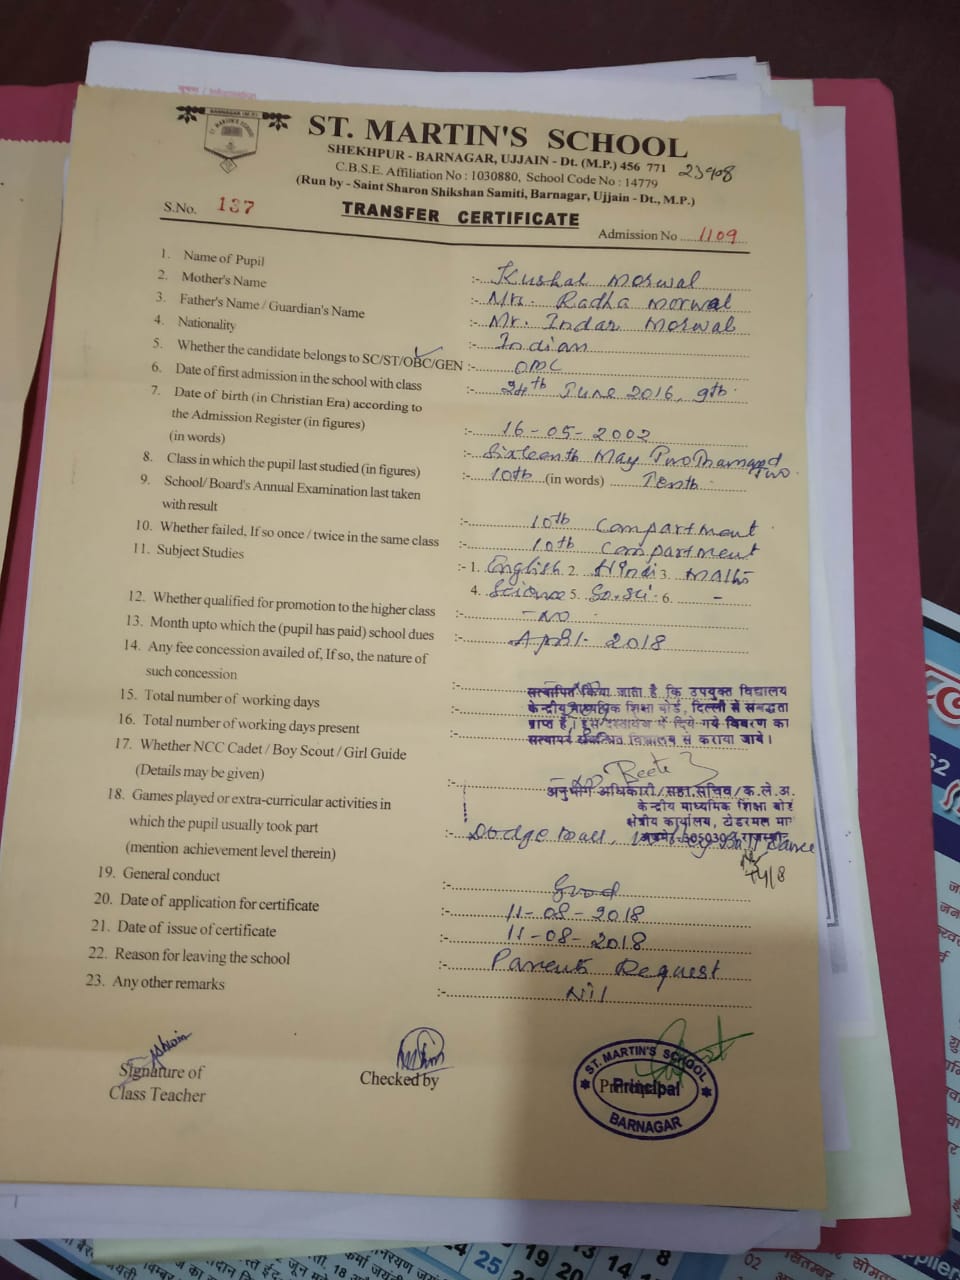 BARNAGAR (M.P.)
ST. MARTIN'S SCHOOL
ST. MARTIN'S SCHOOL
SHEKHPUR - BARNAGAR, UJJAIN - Dt. (M.P.) 456 771
C.B.S.E. Affiliation No : 1030880, School Code No : 14779
(Run by - Saint Sharon Shikshan Samiti, Barnagar, Ujjain - Dt., M.P.)
S.No. 137
TRANSFER CERTIFICATE
Admission No ....1109
1. Name of Pupil :- Kushal Morwal
2. Mother's Name :- Mrs. Radha Morwal
3. Father's Name / Guardian's Name :- Mr. Indar Morwal
4. Nationality :- Indian
5. Whether the candidate belongs to SC/ST/OBC/GEN :- OBC
6. Date of first admission in the school with class :- 24th June 2016, 9th
7. Date of birth (in Christian Era) according to
the Admission Register (in figures) :- 16-05-2002
(in words) :- Sixteenth May Two Thousand Two
8. Class in which the pupil last studied (in figures) :- 10th (in words) Tenth
9. School/ Board's Annual Examination last taken
with result :- 10th Compartment
10. Whether failed, If so once / twice in the same class :- 10th Compartment
11. Subject Studies :- 1. English 2. Hindi 3. Maths
4. Science 5. So.sci. 6. -
12. Whether qualified for promotion to the higher class :- -NO
13. Month upto which the (pupil has paid) school dues :- April- 2018
14. Any fee concession availed of, If so, the nature of
such concession :-
सत्यापित किया जाता है कि उपयुक्त विद्यालय
15. Total number of working days :-
केन्द्रीय माध्यमिक शिक्षा बोर्ड, दिल्ली से संबद्धता
प्राप्त है। इस दस्तावेज में दिये गये विवरण का
16. Total number of working days present :-
सत्यापन संबन्धित विद्यालय से कराया जाये।
17. Whether NCC Cadet / Boy Scout / Girl Guide
(Details may be given) :-
अनुभाग अधिकारी/सहा.सचिव/क.ले.अ.
18. Games played or extra-curricular activities in
केन्द्रीय माध्यमिक शिक्षा बोर्ड
which the pupil usually took part
क्षेत्रीय कार्यालय, टोडरमल मा
(mention achievement level therein) :- Dodge Ball, Dance
19. General conduct :- Good
20. Date of application for certificate :- 11-08-2018
21. Date of issue of certificate :- 11-08-2018
22. Reason for leaving the school :- Parents Request
23. Any other remarks :- Nil
Signature of
Class Teacher
Checked by
ST. MARTIN'S SCHOOL
Principal
BARNAGAR